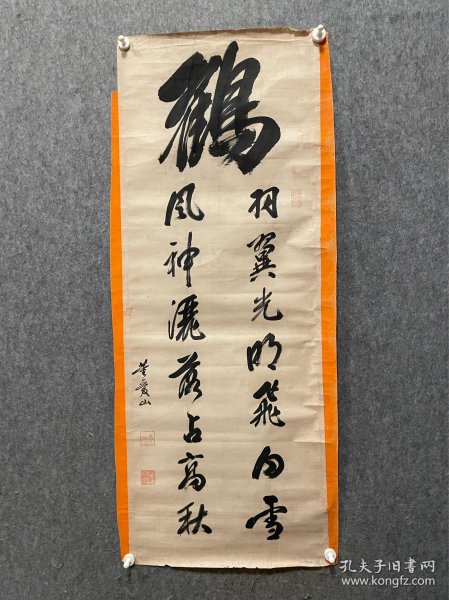 鶴
羽翼光明飛白雪
風神灑落占高秋
董愛山
孔夫子旧书网
www.kongfz.com